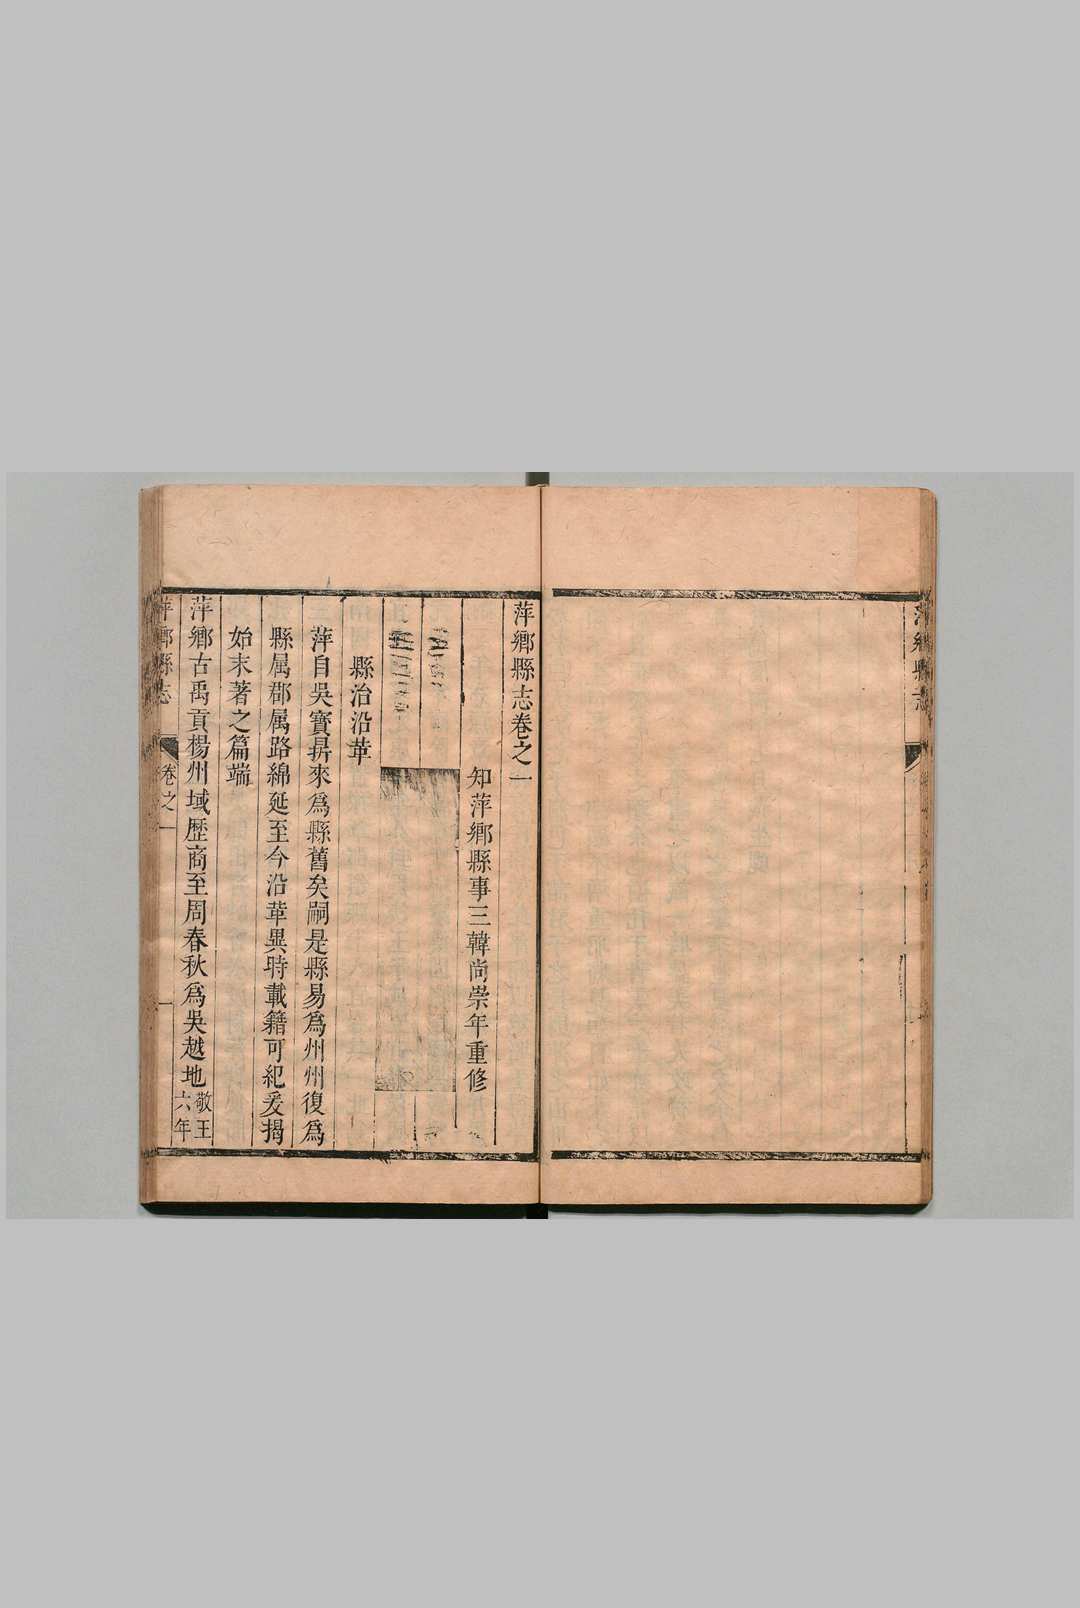 萍鄉縣志
萍鄉縣志卷之一
知萍鄉縣事三韓尚崇年重修
縣治沿革
萍自吳寶鼎來爲縣舊矣嗣是縣易爲州州復爲
縣属郡属路綿延至今沿革異時載籍可紀爰揭
始末著之篇端
萍鄉古禹貢楊州域歷商至周春秋爲吳越地敬王
六年
萍鄉縣志 卷之一 一